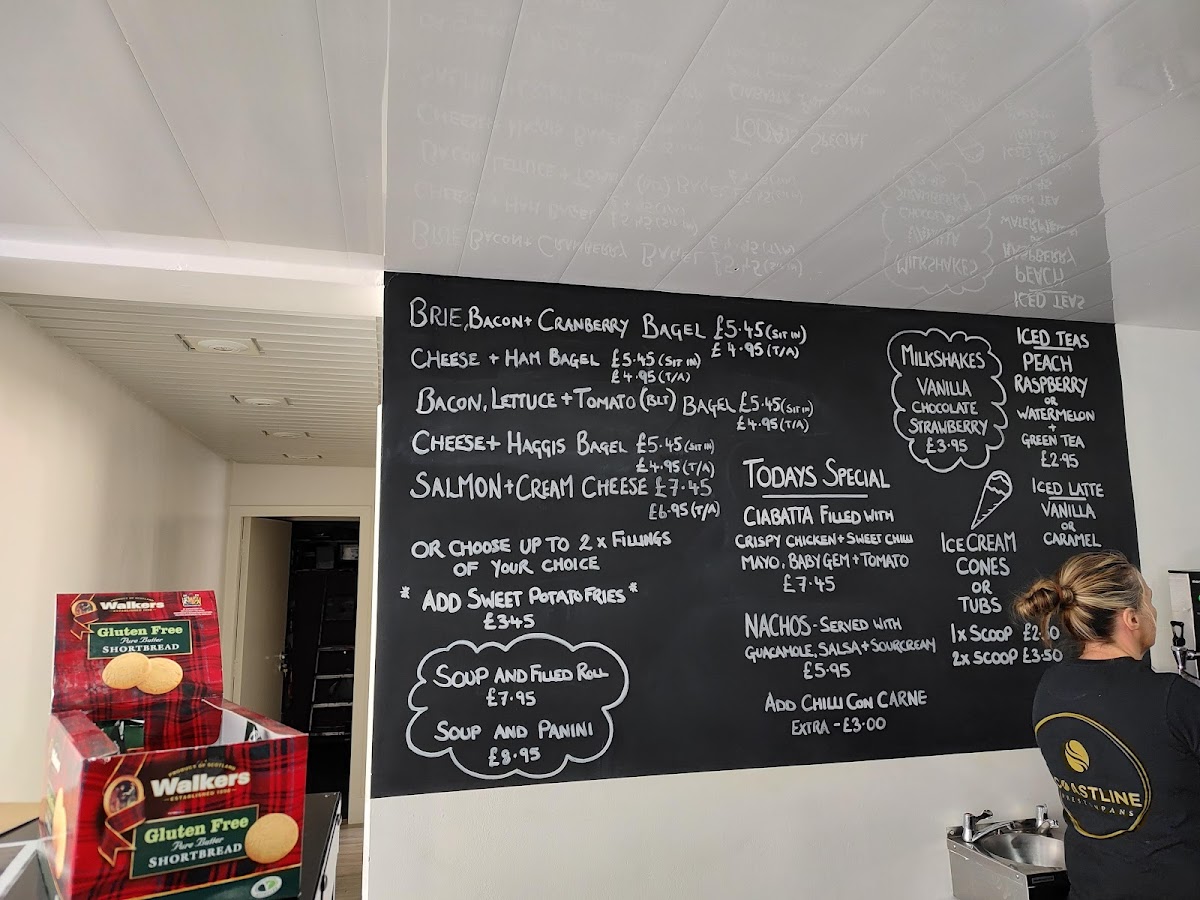 BRIE, BACON + CRANBERRY BAGEL £5.45 (SIT IN)
£4.95 (T/A)
CHEESE + HAM BAGEL £5.45 (SIT IN)
£4.95 (T/A)
BACON, LETTUCE + TOMATO (BLT) BAGEL £5.45 (SIT IN)
£4.95 (T/A)
CHEESE + HAGGIS BAGEL £5.45 (SIT IN)
£4.95 (T/A)
SALMON + CREAM CHEESE £7.45
£6.95 (T/A)
OR CHOOSE UP TO 2 x FILLINGS
OF YOUR CHOICE
* ADD SWEET POTATO FRIES *
£3.45
SOUP AND FILLED ROLL
£7.95
SOUP AND PANINI
£8.95
TODAYS SPECIAL
CIABATTA FILLED WITH
CRISPY CHICKEN + SWEET CHILLI
MAYO, BABY GEM + TOMATO
£7.45
NACHOS - SERVED WITH
GUACAMOLE, SALSA + SOURCREAM
£5.95
ADD CHILLI CON CARNE
EXTRA - £3.00
MILKSHAKES
VANILLA
CHOCOLATE
STRAWBERRY
£3.95
ICED TEAS
PEACH
RASPBERRY
OR
WATERMELON
+
GREEN TEA
£2.95
ICED LATTE
VANILLA
OR
CARAMEL
ICE CREAM
CONES
OR
TUBS
1x SCOOP
2x SCOOP £3.50
Walkers
Gluten Free
Pure Butter
SHORTBREAD
PRODUCT OF SCOTLAND
Walkers
ESTABLISHED 1898
Gluten Free
Pure Butter
SHORTBREAD
COASTLINE